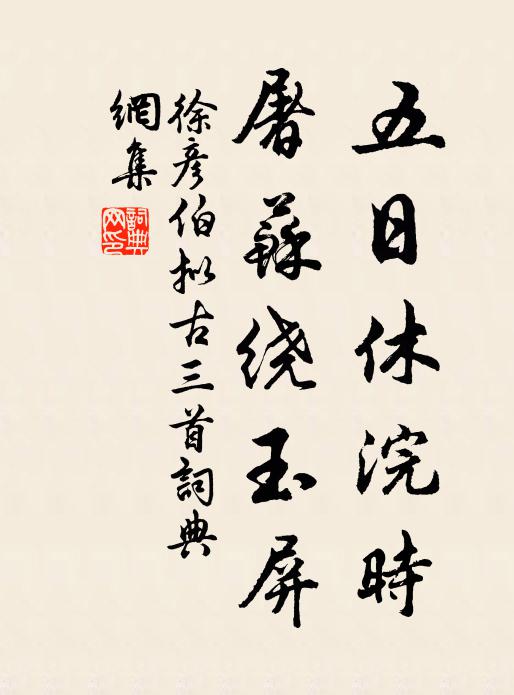 五日休浣時
屠蘇绕玉屏
徐彦伯拟古三首詞典
網集
詞典网印